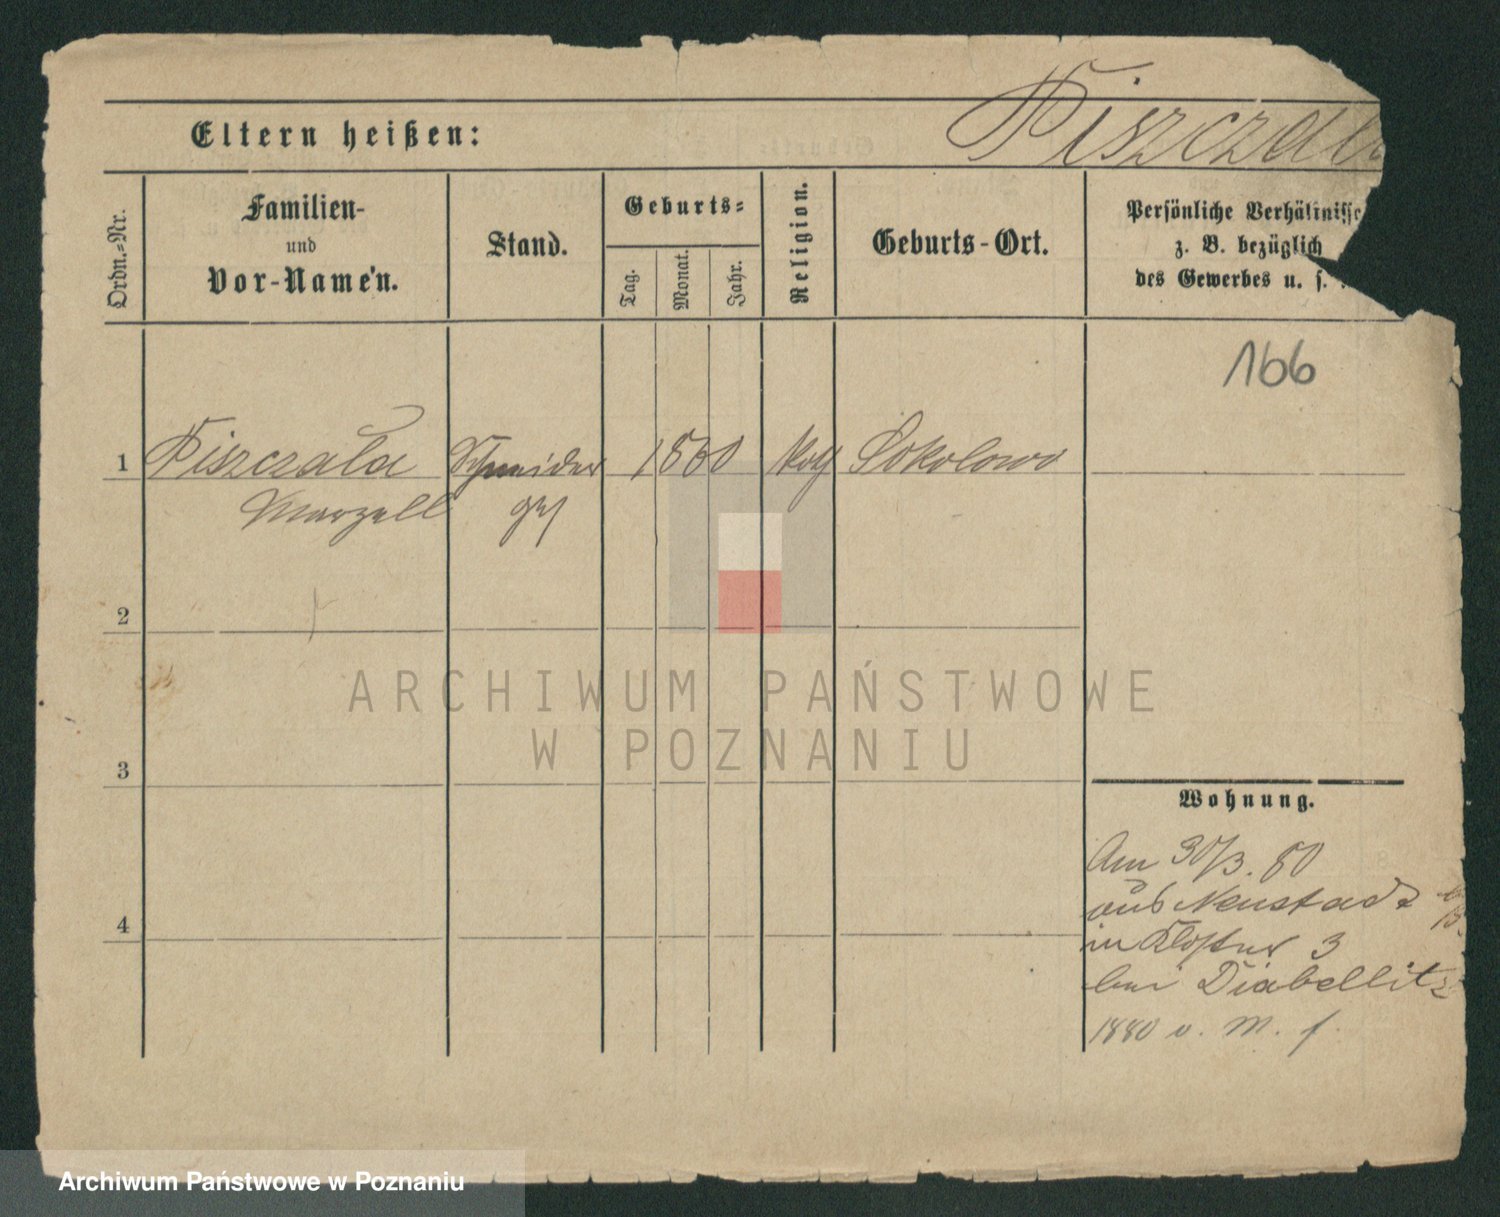 Eltern heißen:
Piszczala
Ordn.-Nr.
Familien-
und
Vor-Namen.
Stand.
Geburts-
Tag.
Monat.
Jahr.
Religion.
Geburts-Ort.
Persönliche Verhältnisse
z. B. bezüglich
des Gewerbes u. s.
166
1 Piszczala Schneider 1860 kath Sokolowo
Marzell ges
2
3
4
Wohnung.
Am 30/3. 80
aus Neustadt
in Kloster 3
bei Diabellitz
1880 v. M. f.
ARCHIWUM PAŃSTWOWE
W POZNANIU
Archiwum Państwowe w Poznaniu